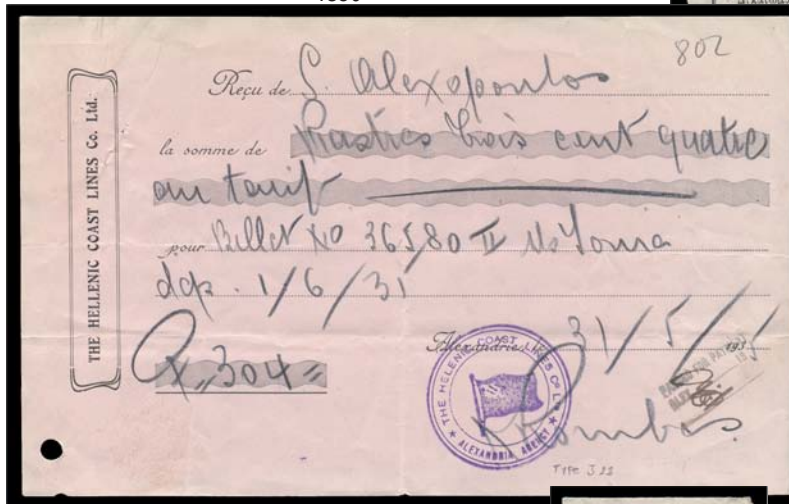 802
THE HELLENIC COAST LINES Co. Ltd.
Reçu de S. Alexopoulos
la somme de Piastres trois cent quatre
au tarif
pour Billet No 36580 II
dep. 1/6/31
Alexandrie, le 31/5/ 193
304
THE HELENIC COAST LINES Co LTD
ALEXANDRIA AGENCY
TYPE 3.22